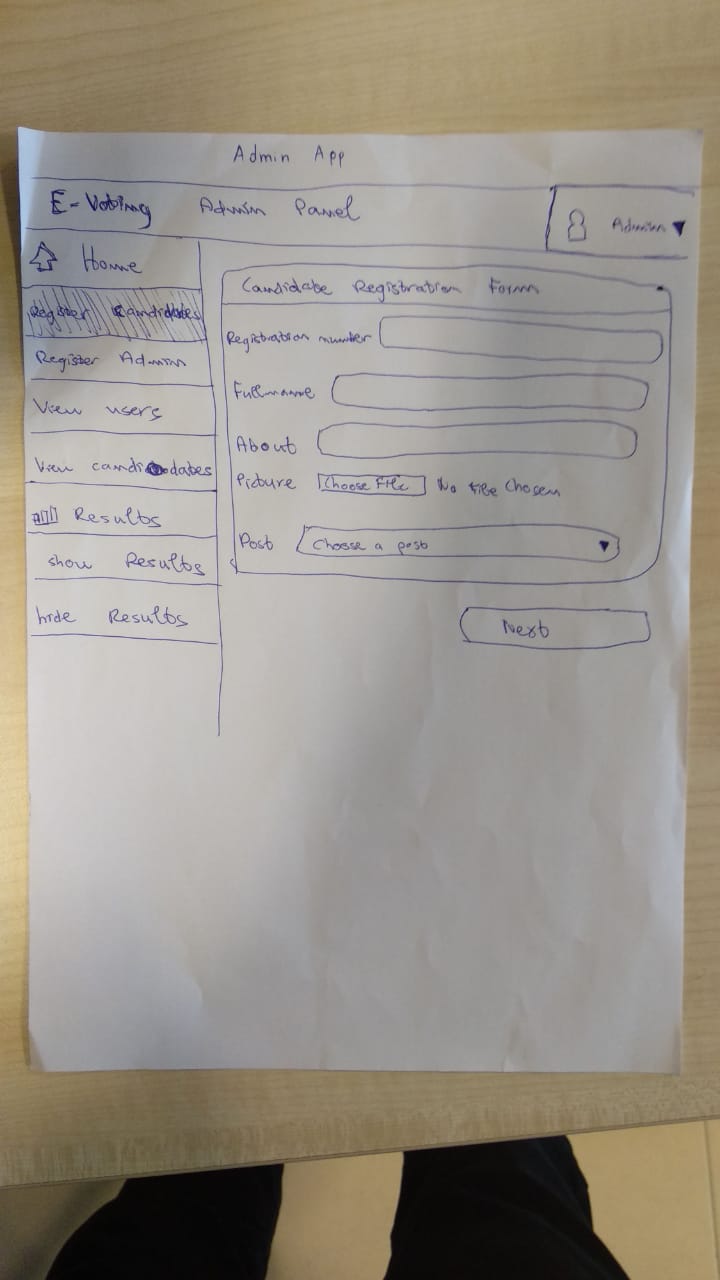 Admin App
E-Voting Admin Panel
Admin
Home
Register Candidates
Register Admin
View users
View candidates
Results
show Results
hide Results
Candidate Registration Form
Registration number
Fullname
About
Picture Choose File No file chosen
Post Choose a post
Next